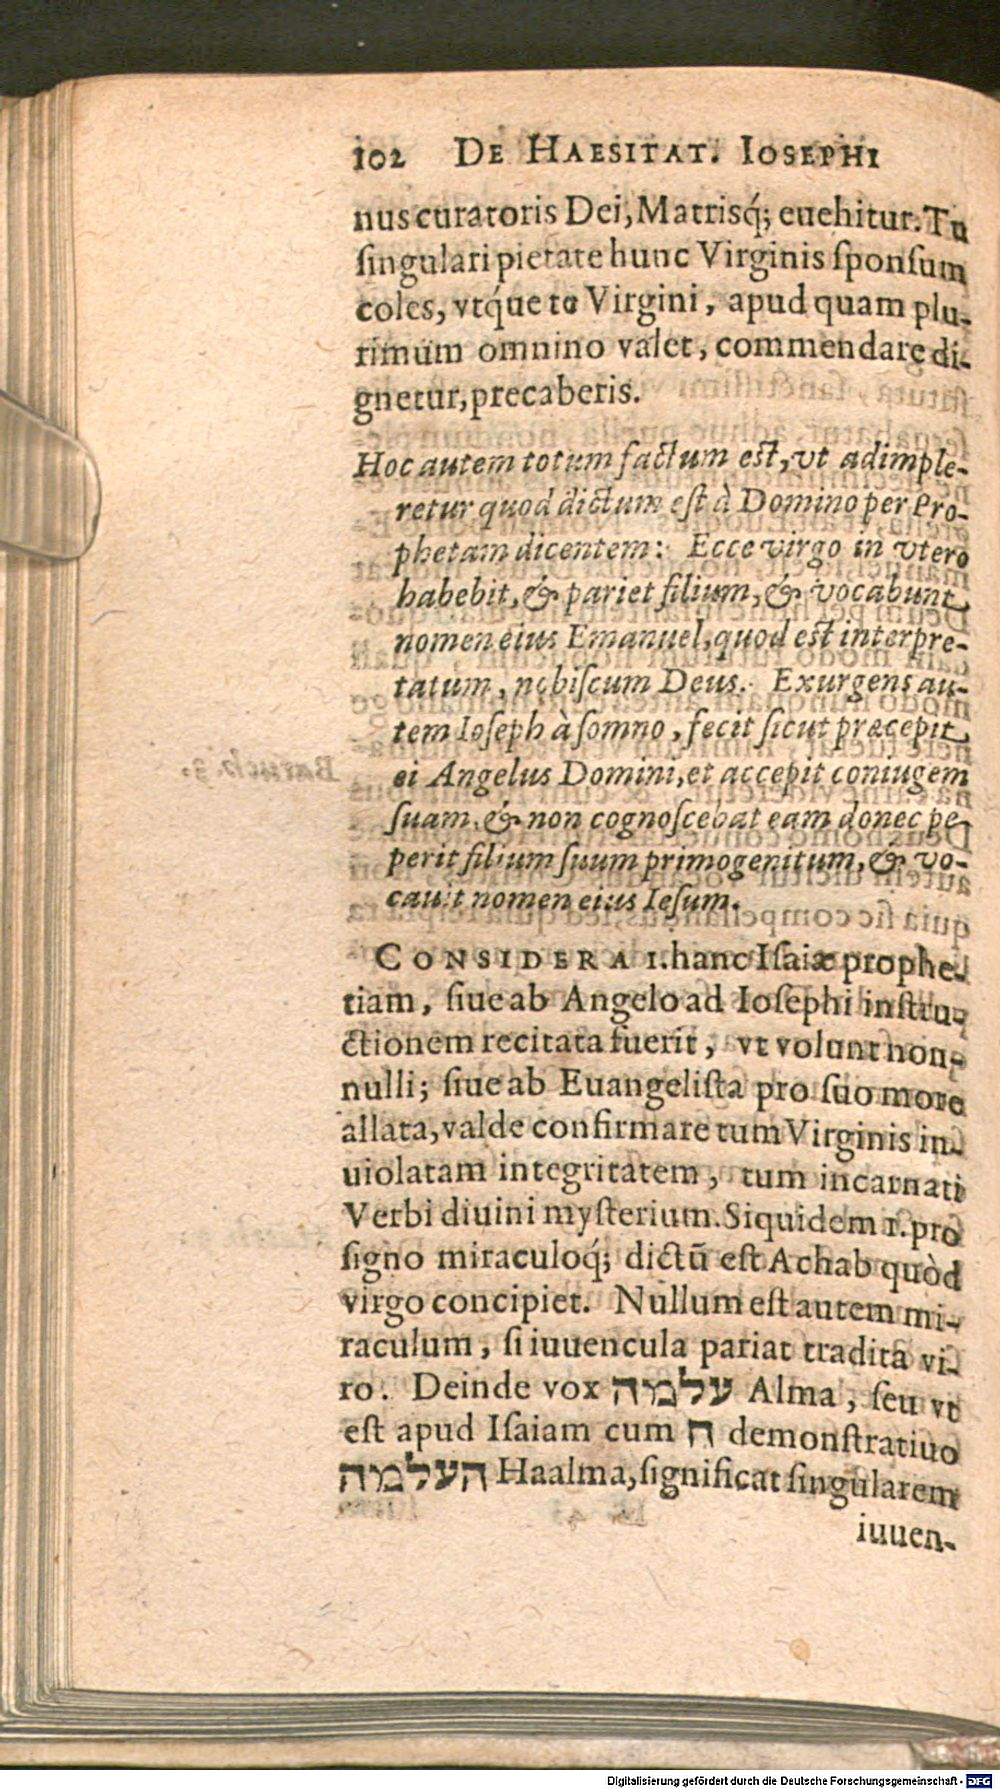 102 DE HAESITAT. IOSEPHI
nus curatoris Dei, Matrisq́; euehitur. Tu
ſingulari pietate hunc Virginis ſponſum
coles, vtq́ue te Virgini, apud quam plu-
rimum omnino valet, commendare di-
gnetur, precaberis.
Hoc autem totum factum eſt, vt adimple-
retur quod dictum eſt à Domino per Pro-
phetam dicentem: Ecce virgo in vtero
habebit, & pariet filium, & vocabunt
nomen eius Emanuel, quod eſt interpre-
tatum, nobiſcum Deus. Exurgens au-
tem Ioſeph à ſomno, fecit ſicut præcepit
ei Angelus Domini, et accepit coniugem
ſuam, & non cognoſcebat eam donec pe-
perit filium ſuum primogenitum, & vo-
cauit nomen eius Ieſum.
CONSIDERA 1. hanc Iſaiæ prophe-
tiam, ſiue ab Angelo ad Ioſephi inſtru-
ctionem recitata fuerit, vt volunt non-
nulli; ſiue ab Euangeliſta pro ſuo more
allata, valde confirmare tum Virginis in-
uiolatam integritatem, tum incarnati
Verbi diuini myſterium. Siquidem 1. pro
ſigno miraculoq́; dictū eſt Achab quòd
virgo concipiet. Nullum eſt autem mi-
raculum, ſi iuuencula pariat tradita vi-
ro. Deinde vox עלמה Alma, ſeu vt
eſt apud Iſaiam cum ה demonſtratiuo
העלמה Haalma, ſignificat ſingularem
iuuen-
Digitalisierung gefördert durch die Deutsche Forschungsgemeinschaft - DFG